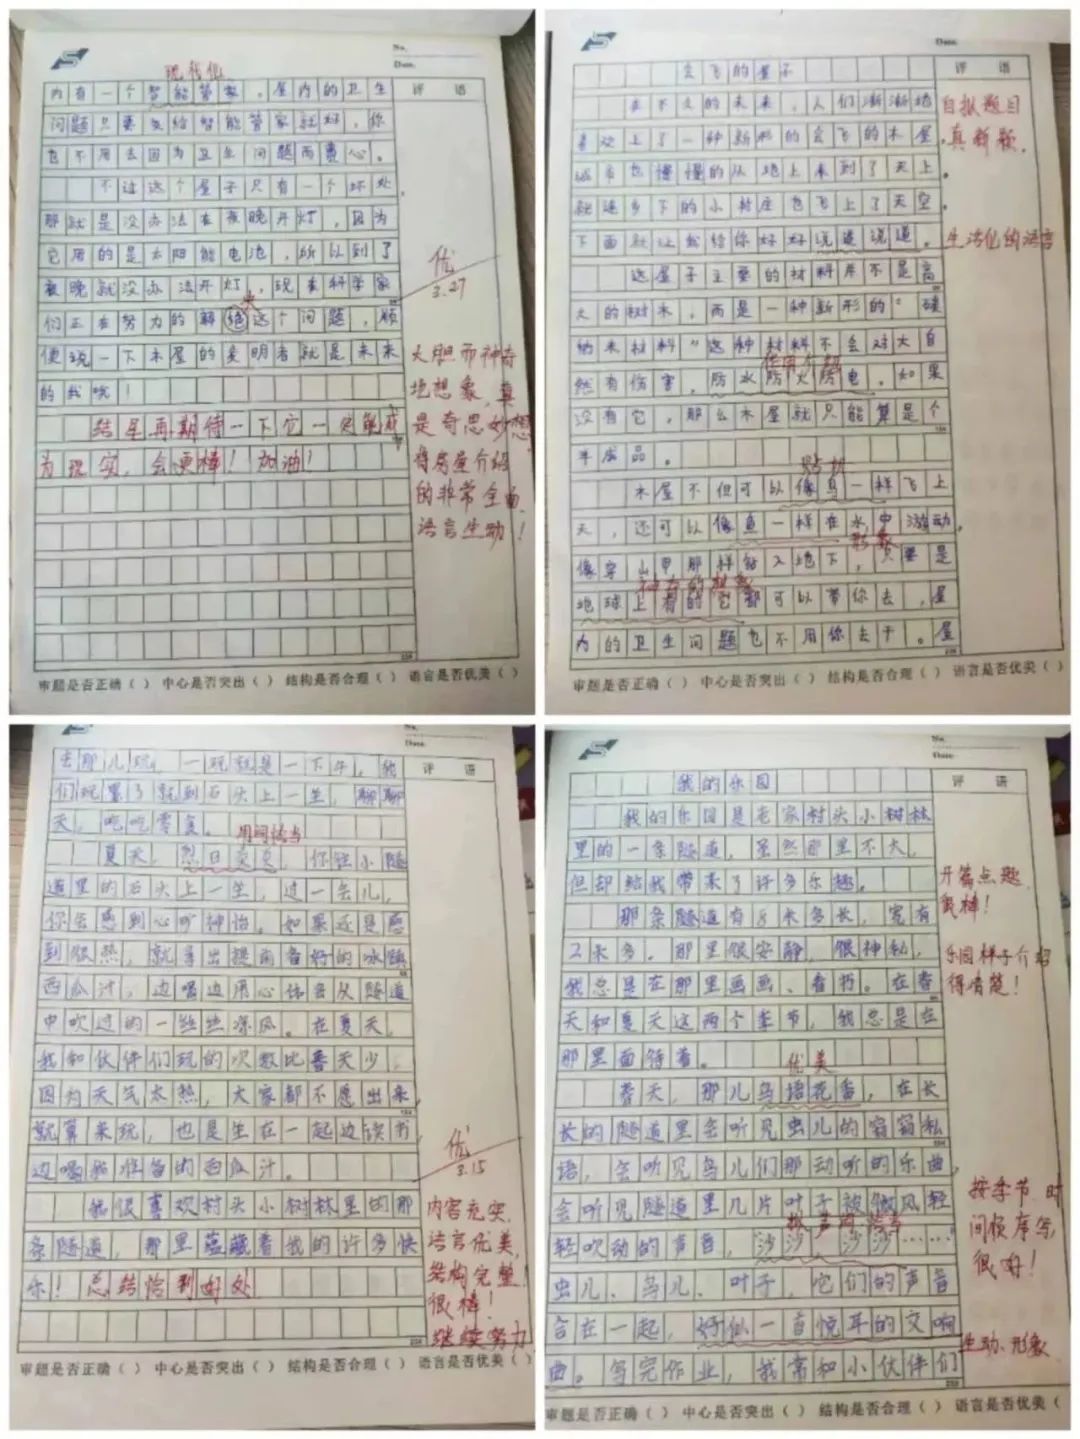 No.
Date.
现代化
内有一个智能管家,屋内的卫生
问题只要交给智能管家就好,你
也不用去因为卫生问题而费心。
不过这个屋子只有一个坏处,
那就是没办法在夜晚开灯,因为
它用的是太阳能电池,所以到了
夜晚就没办法开灯,现在科学家
们正在努力的解绝这个问题,顺
决
便说一下木屋的发明者就是未来
的我哦!
结尾再期待一下它一定能成
为现实,会更棒!加油!
评 语
优
3.27
大胆而神奇
地想象,真
是奇思妙想
将房屋介绍
的非常全面,
语言生动!
审题是否正确( ) 中心是否突出( ) 结构是否合理( ) 语言是否优美( )
Date.
会飞的屋子
在不久的未来,人们渐渐地
喜欢上了一种新形的会飞的木屋,
城市也慢慢的从地上来到了天上。
就连乡下的小村庄也飞上了天空。
下面就让我给你好好说道说道。
这屋子主要的材料并不是高
大的树木,而是一种新形的“碳
纳米材料”这种材料不会对大自
作用介绍
然有伤害,防水防火防电。如果
没有它,那么木屋就只能算是个
半成品。
贴切
木屋不但可以像鸟一样飞上
天,还可以像鱼一样在水中游动,
形象
像穿山甲那样钻入地下,只要是
神奇的想象
地球上有的它都可以带你去,屋
内的卫生问题也不用你去干。屋
评 语
自拟题目
真新颖。
生活化的语言
审题是否正确( ) 中心是否突出( ) 结构是否合理( ) 语言是否优美( )
No.
Date.
去那儿玩,一玩就是一下午,我
们玩累了就到石头上一坐,聊聊
天,吃吃零食。
用词恰当
夏天,烈日炎炎,你在小隧
道里的石头上一坐,过一会儿,
你会感到心旷神怡。如果还是感
到很热,就拿出提前备好的冰镇
西瓜汁,边喝边用心体会从隧道
中吹过的一丝丝凉风。在夏天,
我和伙伴们玩的次数比春天少,
因为天气太热,大家都不愿出来,
就算来玩,也是坐在一起边读书,
边喝我准备的西瓜汁。
我很喜欢村头小树林里的那
条隧道,那里蕴藏着我的许多快
乐!总结恰到好处
评 语
优
3.15
内容充实,
语言优美,
结构完整!
很棒!
继续努力
审题是否正确( ) 中心是否突出( ) 结构是否合理( ) 语言是否优美( )
No.
Date.
我的乐园
我的乐园是老家村头小树林
里的一条隧道,虽然那里不大,
但却给我带来了许多乐趣。
那条隧道有8米多长,宽有
2米多。那里很安静,很神秘,
我总是在那里画画、看书。在春
天和夏天这两个季节,我总是在
那里面待着。
优美
春天,那儿鸟语花香,在长
长的隧道里会听见虫儿的窃窃私
语,会听见鸟儿们那动听的乐曲,
会听见隧道里几片叶子被微风轻
拟声词 恰当
轻吹动的声音,沙沙,沙沙……
虫儿、鸟儿、叶子,它们的声音
合在一起,好似一首悦耳的交响
曲。写完作业,我常和小伙伴们
评 语
开篇点题,
很棒!
乐园样子介绍
得清楚!
按季节、时
间顺序写,
很好!
生动、形象
审题是否正确( ) 中心是否突出( ) 结构是否合理( ) 语言是否优美(